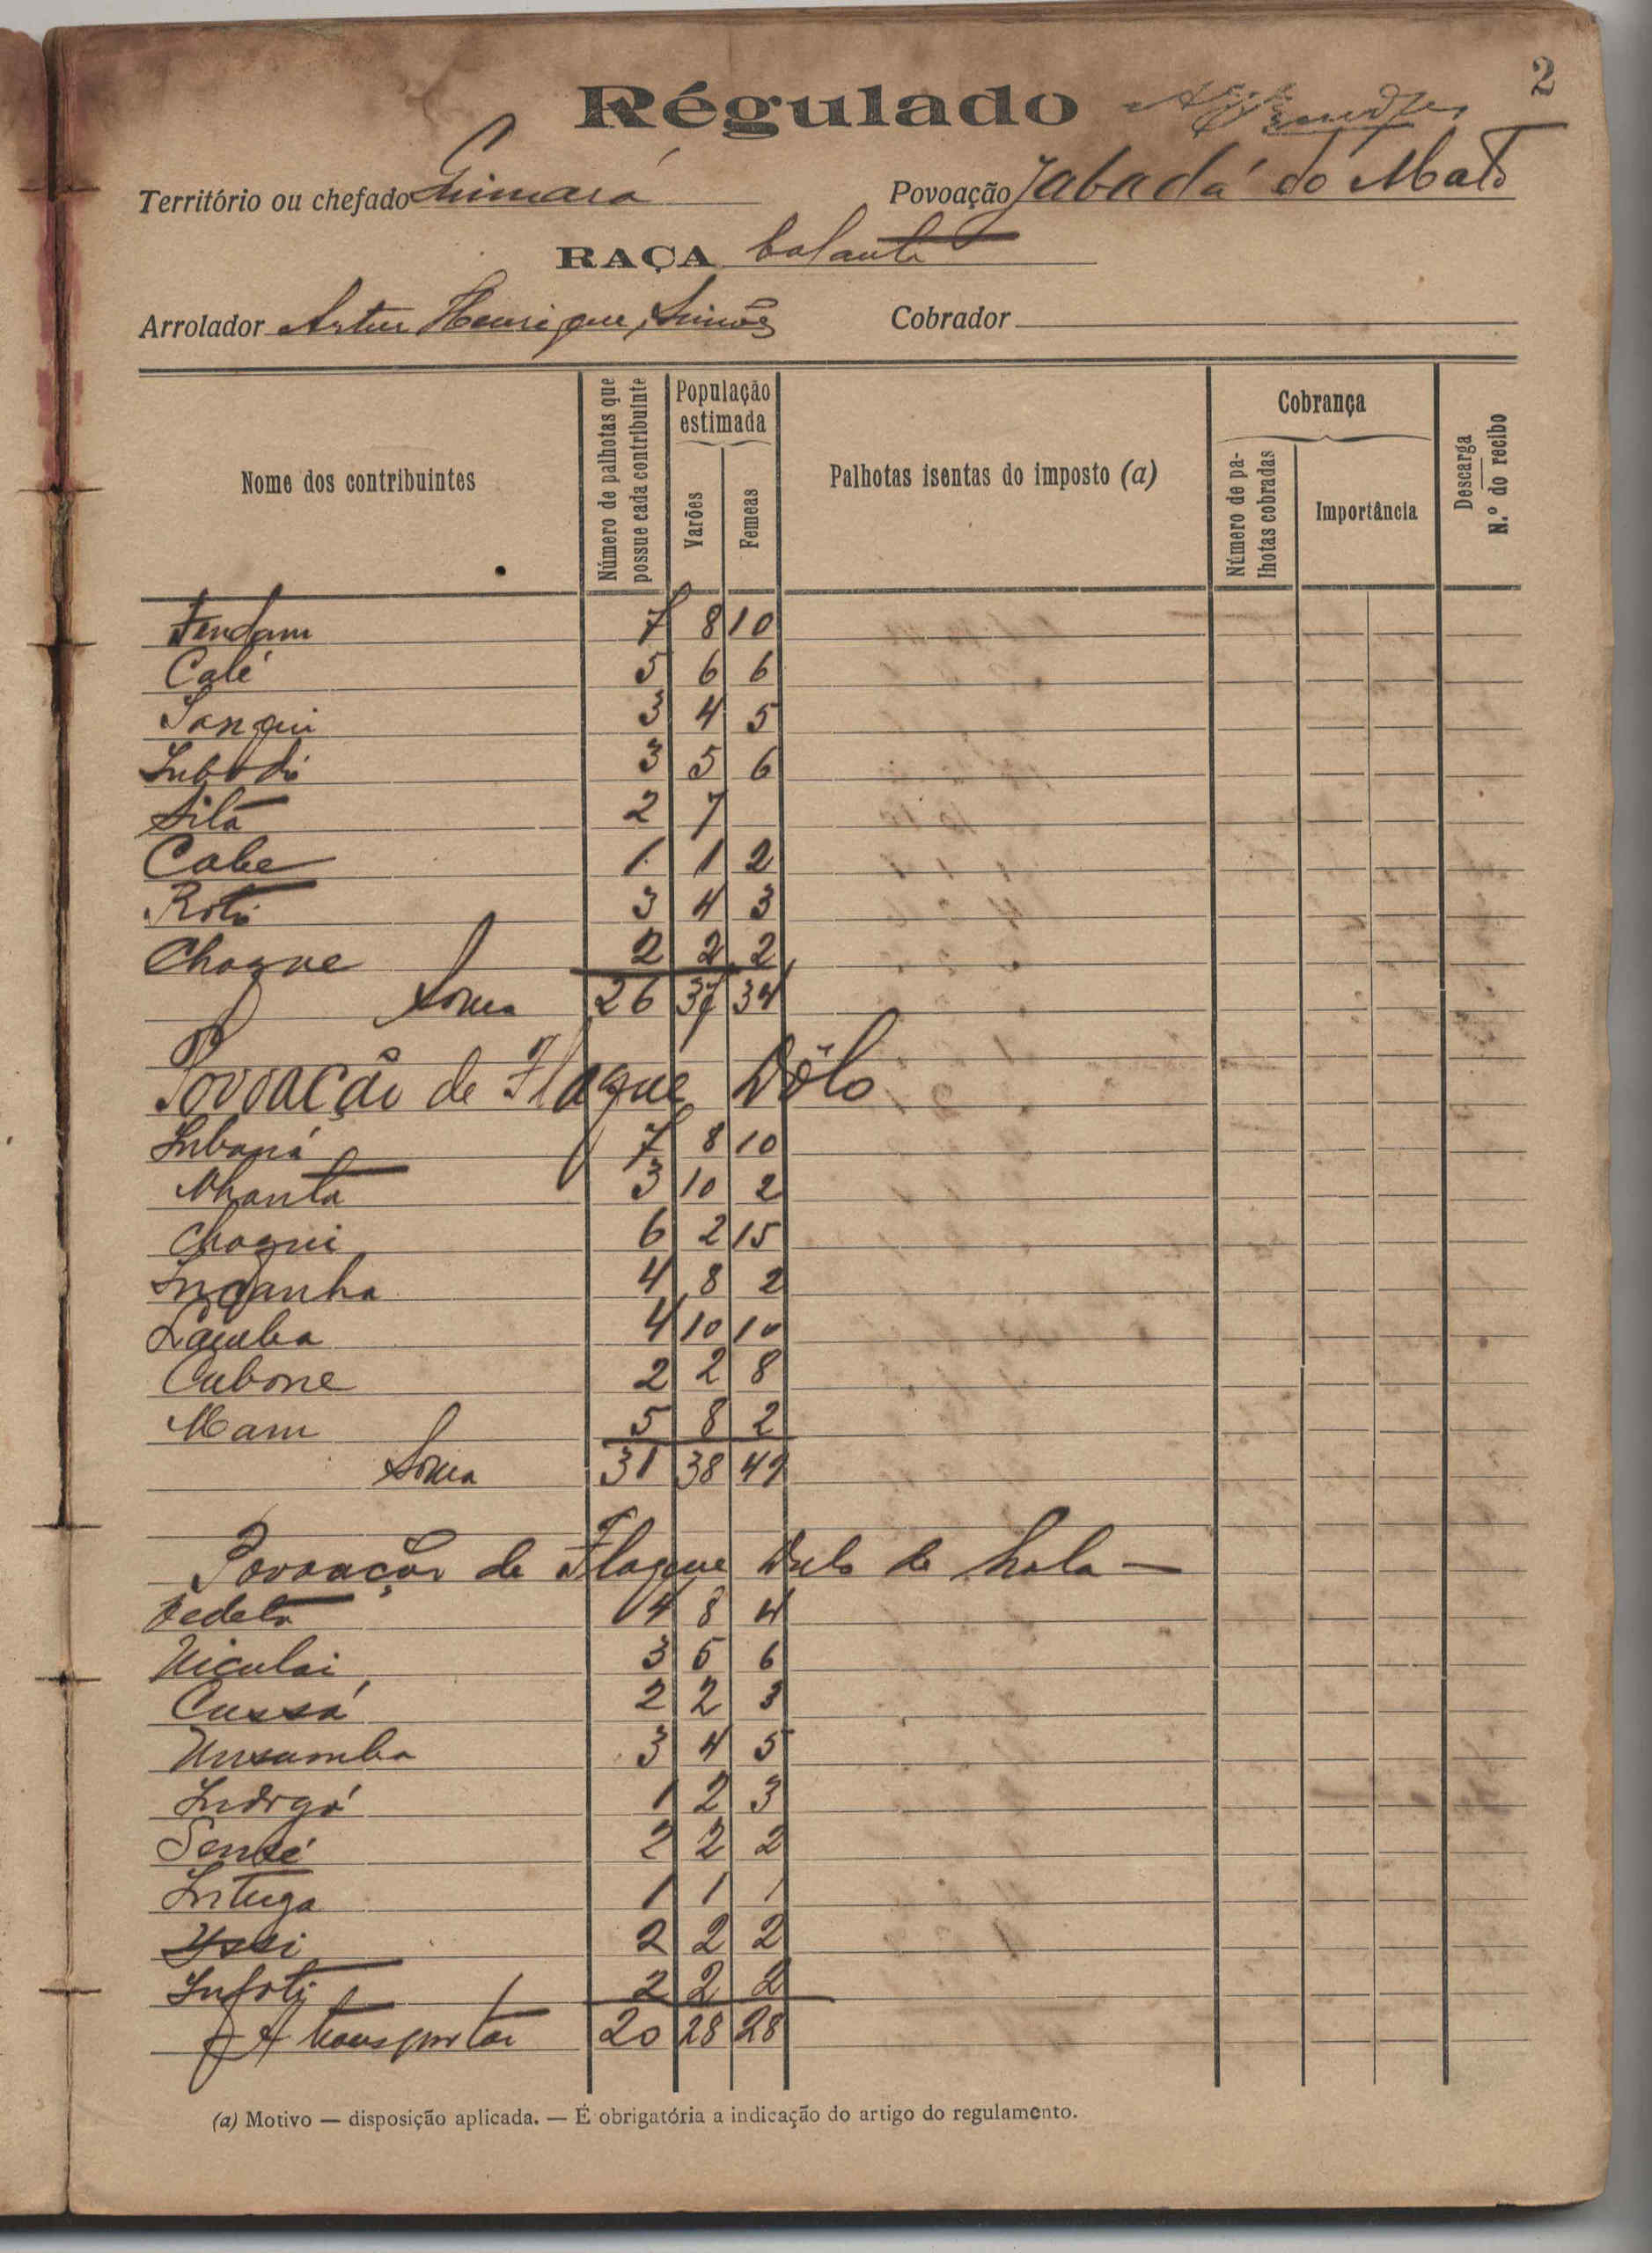 2
Régulado
Território ou chefado Guimará Povoação Jabadá do Mato
RAÇA balanta
Arrolador Artur Henrique Simões Cobrador
Nome dos contribuintes
Número de palhotas que possue cada contribuinte
População estimada
Varões
Femeas
Palhotas isentas do imposto (a)
Cobrança
Número de palhotas cobradas
Importância
Descarga
N.º do recibo
Fendam 7 8 10
Calé 5 6 6
Sanqui 3 4 5
Imbodi 3 5 6
Sita 2 7
Cabe 1 1 2
Roti 3 4 3
Choque 2 2 2
Soma 26 37 34
Povoação de Flaque Dôlo
Inbaná 7 8 10
Nhanta 3 10 2
Choqui 6 2 15
Incanha 4 8 2
Lamba 4 10 10
Cubone 2 2 8
Mam 5 8 2
Soma 31 38 49
Povoação de Flaque Dulo de hala —
Fedeta 4 8 4
Niculai 3 5 6
Cussá 2 2 3
Unsumba 3 4 5
Indrgó 1 2 3
Sensé 2 2 2
Intuga 1 1 1
Yssi 2 2 2
Infoti 2 2 2
A transportar 20 28 28
(a) Motivo — disposição aplicada. — É obrigatória a indicação do artigo do regulamento.